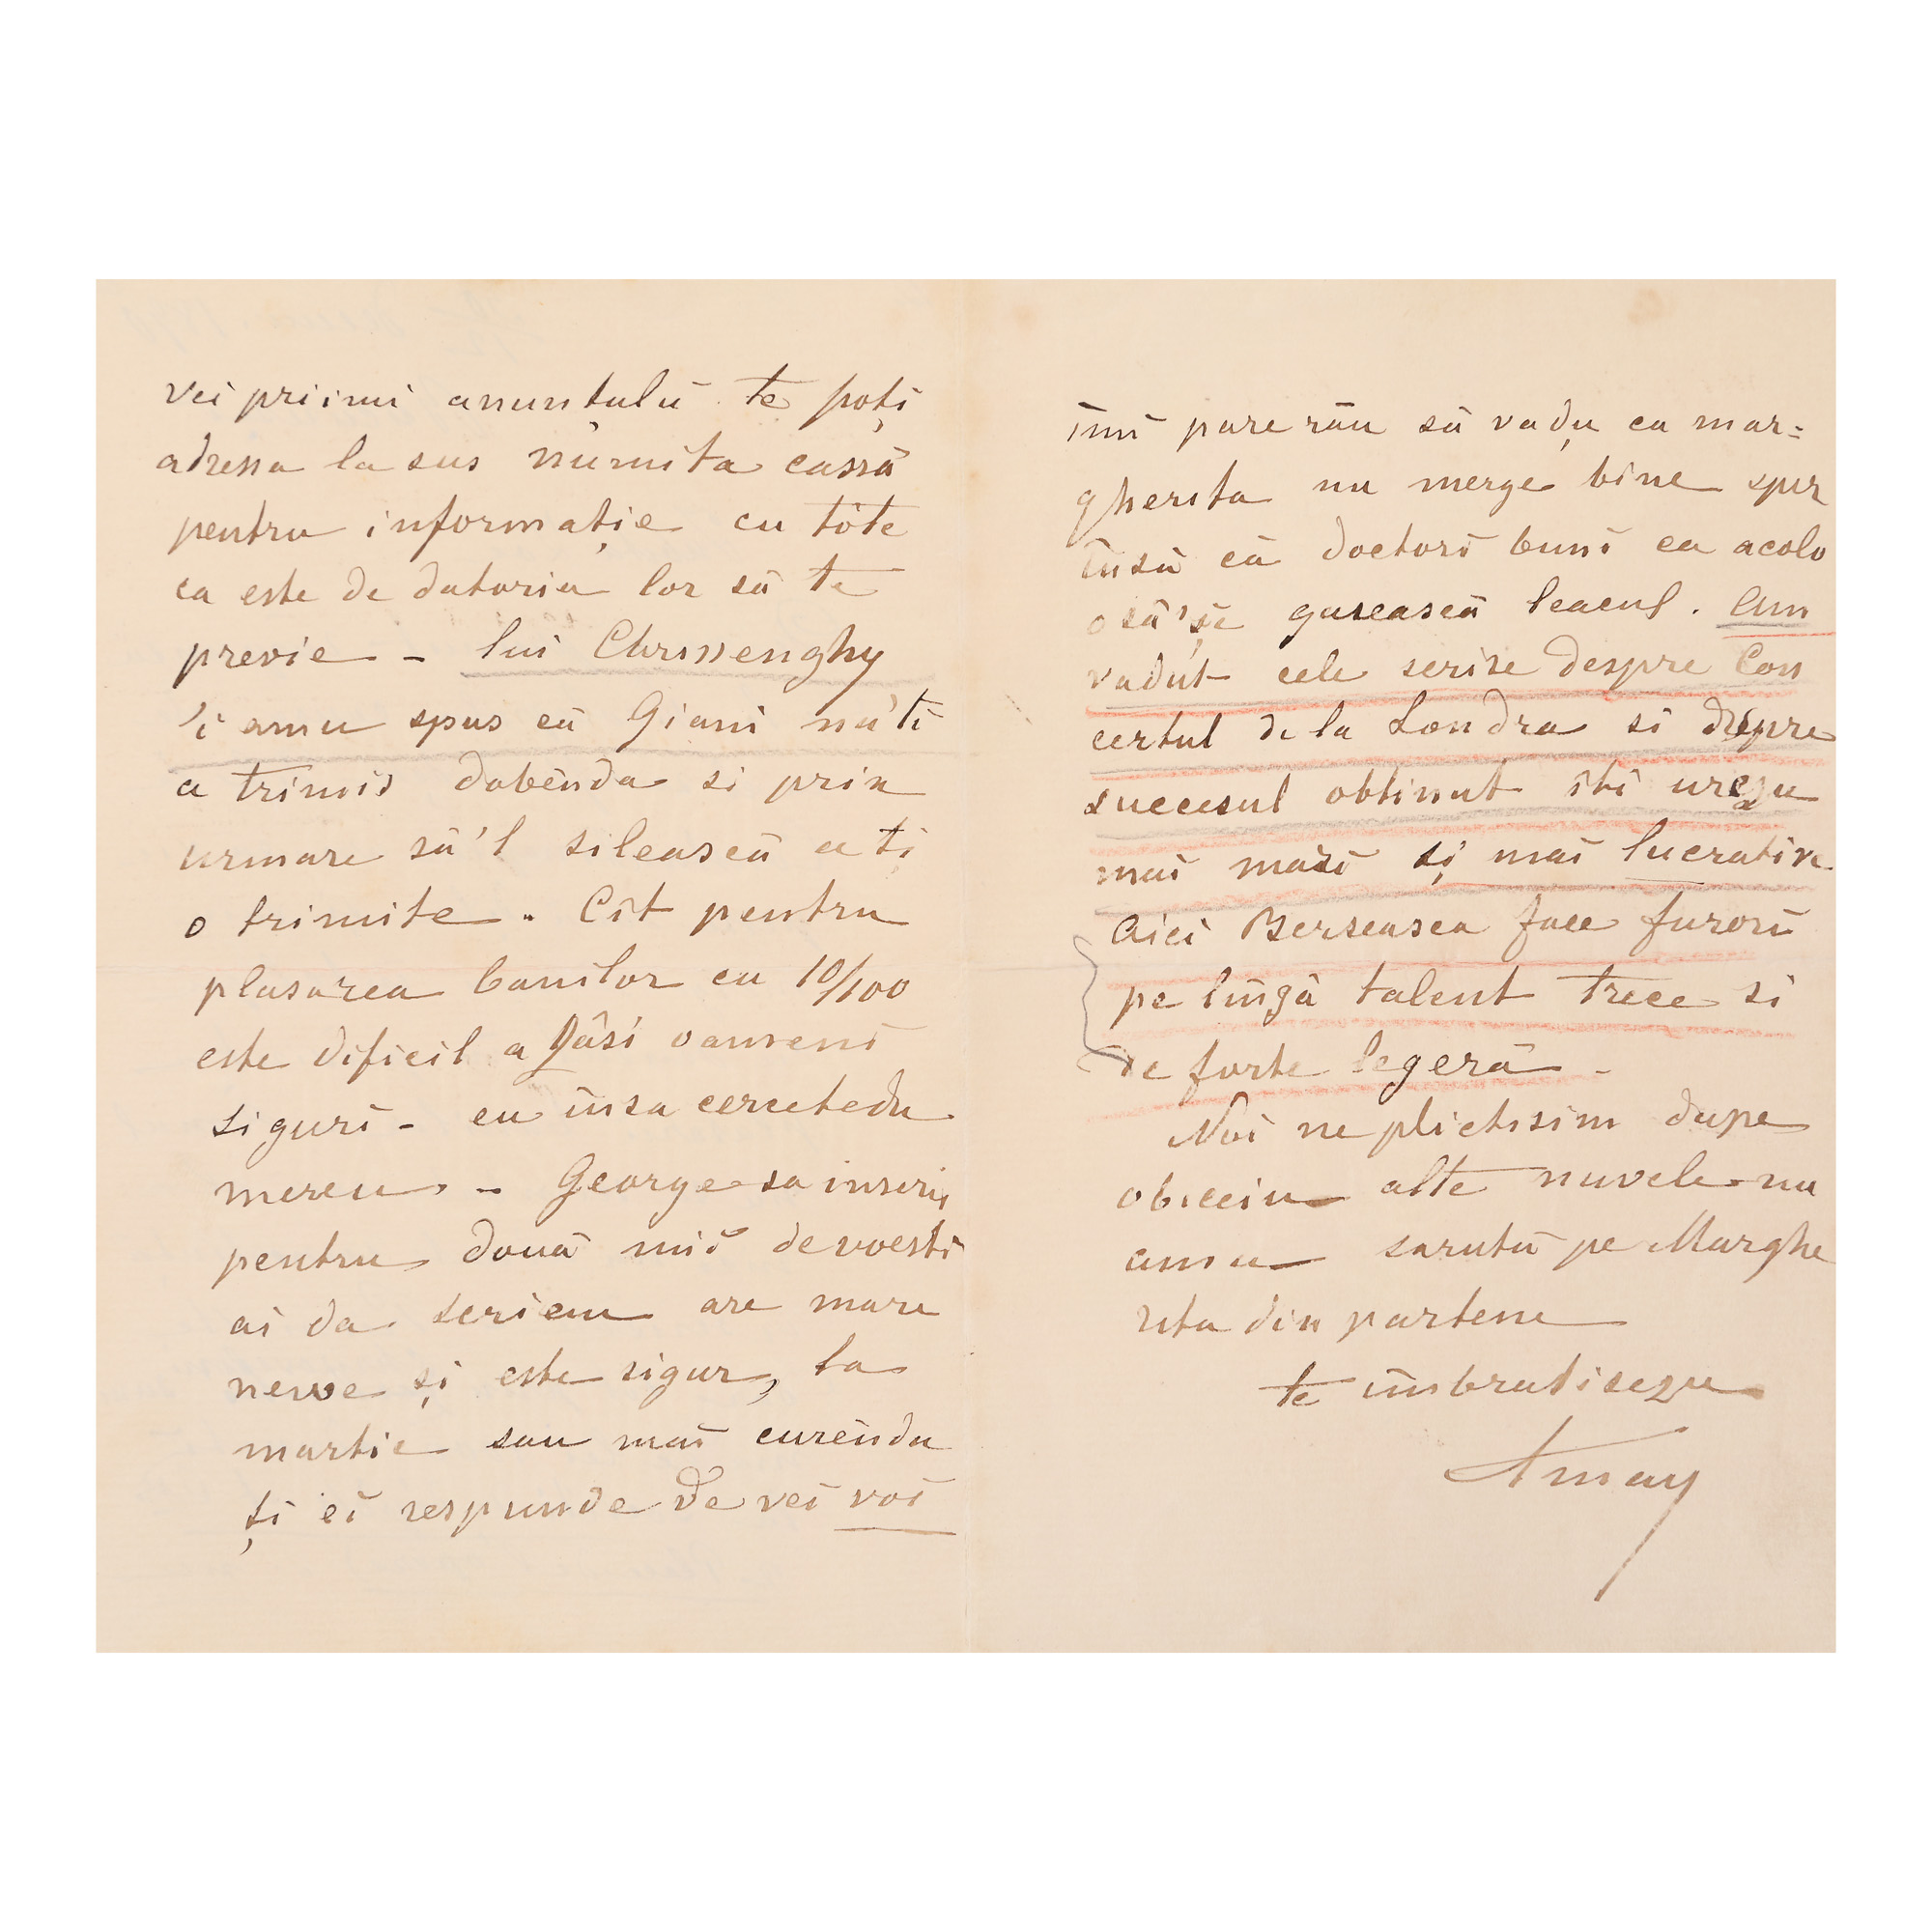 vei priimi anunțulŭ te poți
adressa la sus numita cassă
pentru informație cu tóte
ca este de datoria lor să te
previe – lui Chrissenghy
'i amu spus că Giani nu'ti
a trimis dobênda si prin
urmare să'l silească a ți
o trimite. Cît pentru
plasarea banilor cu 10/100
este dificil a găsi oameni
siguri – eu însa cercetedu
mereu. – George sa inscris
pentru două mii de voesti
ai da scriem are mare
nevoe și este sigur, la
martie sau mai curêndu
ți ei respunde de vei voi
îmi pare rău să vadu ca mar=
gherita nu merge bine sper
însă că doctori buni ca acolo
o să'șe gasească leacul. Am
vadut cele scrise despre Con
certul de la Londra si despre
succesul obtinut îti urezu
mai mari și mai lucrative
Aici Berseasca face furori
pe lîngă talent trece si
de forte legeră –
Noi ne plictisim dupe
obiceiu alte nuvele nu
amu sarută pe Marghe
rita din partene
te îmbratisezu